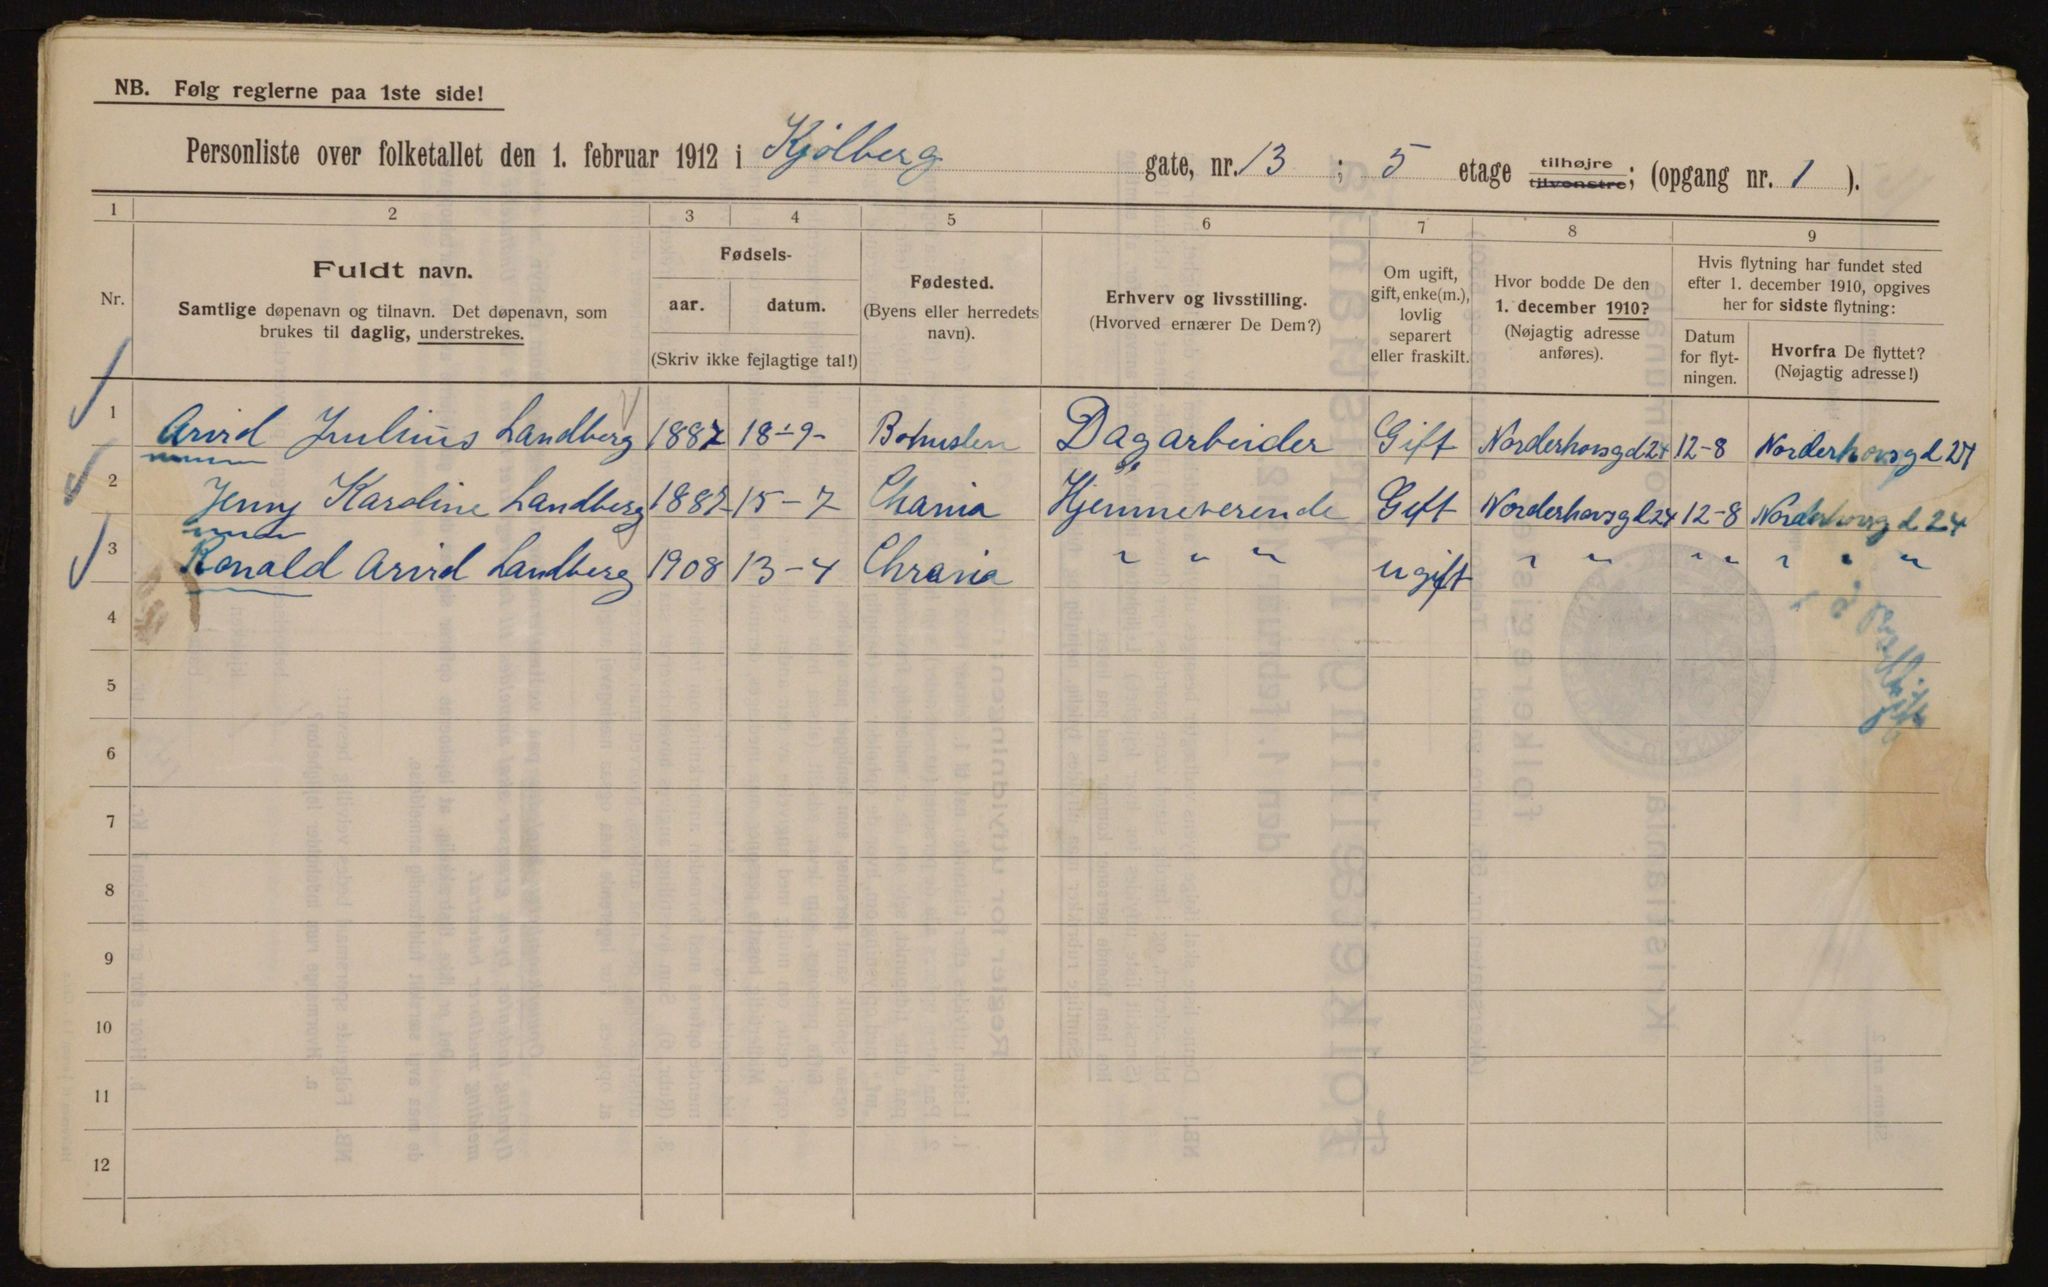 NB. Følg reglerne paa 1ste side!
Personliste over folketallet den 1. februar 1912 i Kjølberg gate, nr. 13 ; 5 etage tilhøjre tilvenstre; (opgang nr. 1 ).
1 2 3 4 5 6 7 8 9
Nr.
Fuldt navn.
Samtlige døpenavn og tilnavn. Det døpenavn, som
brukes til daglig, understrekes.
Fødsels-
aar. datum.
(Skriv ikke fejlagtige tal!)
Fødested.
(Byens eller herredets
navn).
Erhverv og livsstilling.
(Hvorved ernærer De Dem?)
Om ugift,
gift, enke(m.),
lovlig
separert
eller fraskilt.
Hvor bodde De den
1. december 1910?
(Nøjagtig adresse
anføres).
Hvis flytning har fundet sted
efter 1. december 1910, opgives
her for sidste flytning:
Datum
for flyt-
ningen.
Hvorfra De flyttet?
(Nøjagtig adresse!)
1 Arvid Julius Landberg 1887 18-9- Bohuslen Dagarbeider Gift Norderhovsgd 24 12-8 Norderhovsgd 24
2 Jenny Karoline Landberg 1887 15-7 Chania Hjemmeverende Gift Norderhovsgd 24 12-8 Norderhovsgd 24
3 Ronald Arvid Landberg 1908 13-4 Chrania " " " ugift " " " " " " "
4
5
6
7
8
9
10
11
12